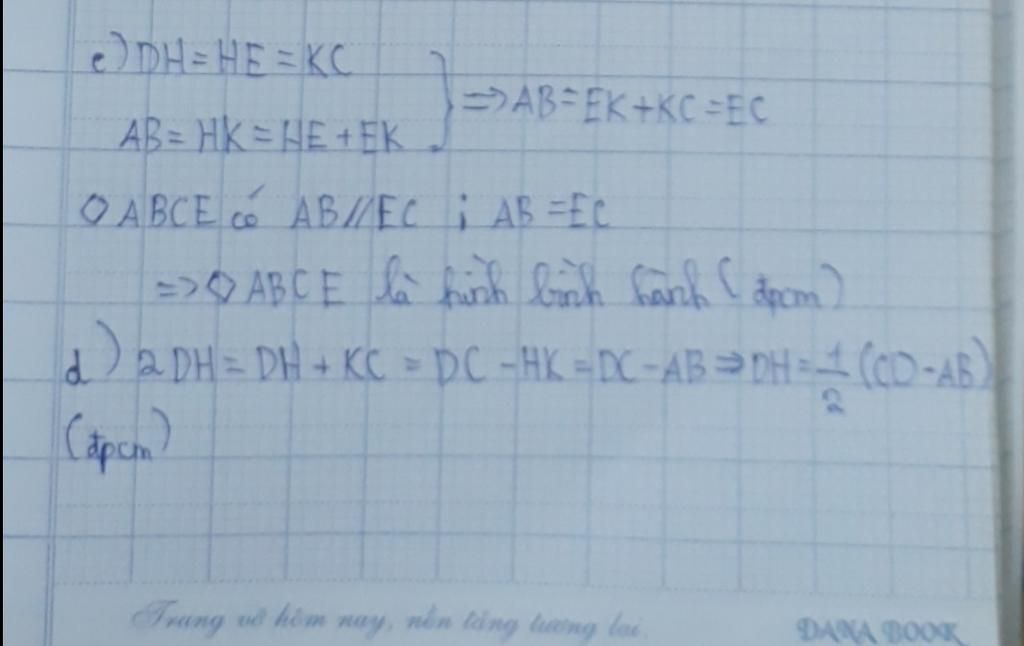 c) DH = HE = KC
AB = HK = HE + EK
⇒ AB = EK + KC = EC
◊ ABCE có AB // EC ; AB = EC
=> ◊ ABCE là hình bình hành (đpcm)
d) 2DH = DH + KC = DC - HK = DC - AB ⇒ DH = 1/2 (CD - AB)
(đpcm)
Trang vở hôm nay, nền tảng tương lai.
DANA BOOK